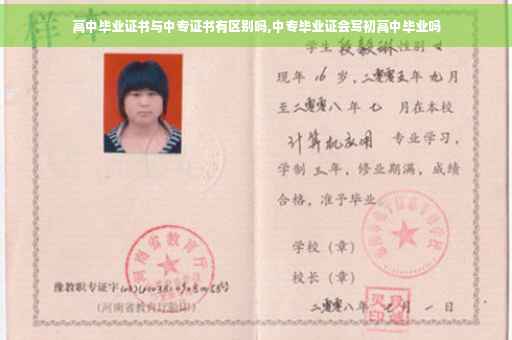 高中毕业证书与中专证书有区别吗,中专毕业证会写初高中毕业吗
样
学生 段毅琳 性别 女
现年 16 岁,二零零五年 九月
至二零零八年 七 月在本校
计算机应用 专业学习,
学制 三 年,修业期满,成绩
合格,准予毕业
学校(章)
校长(章)
豫教职专证字
(河南省教育厅验印)
河南省教育厅
二零零八年 七 月 一 日